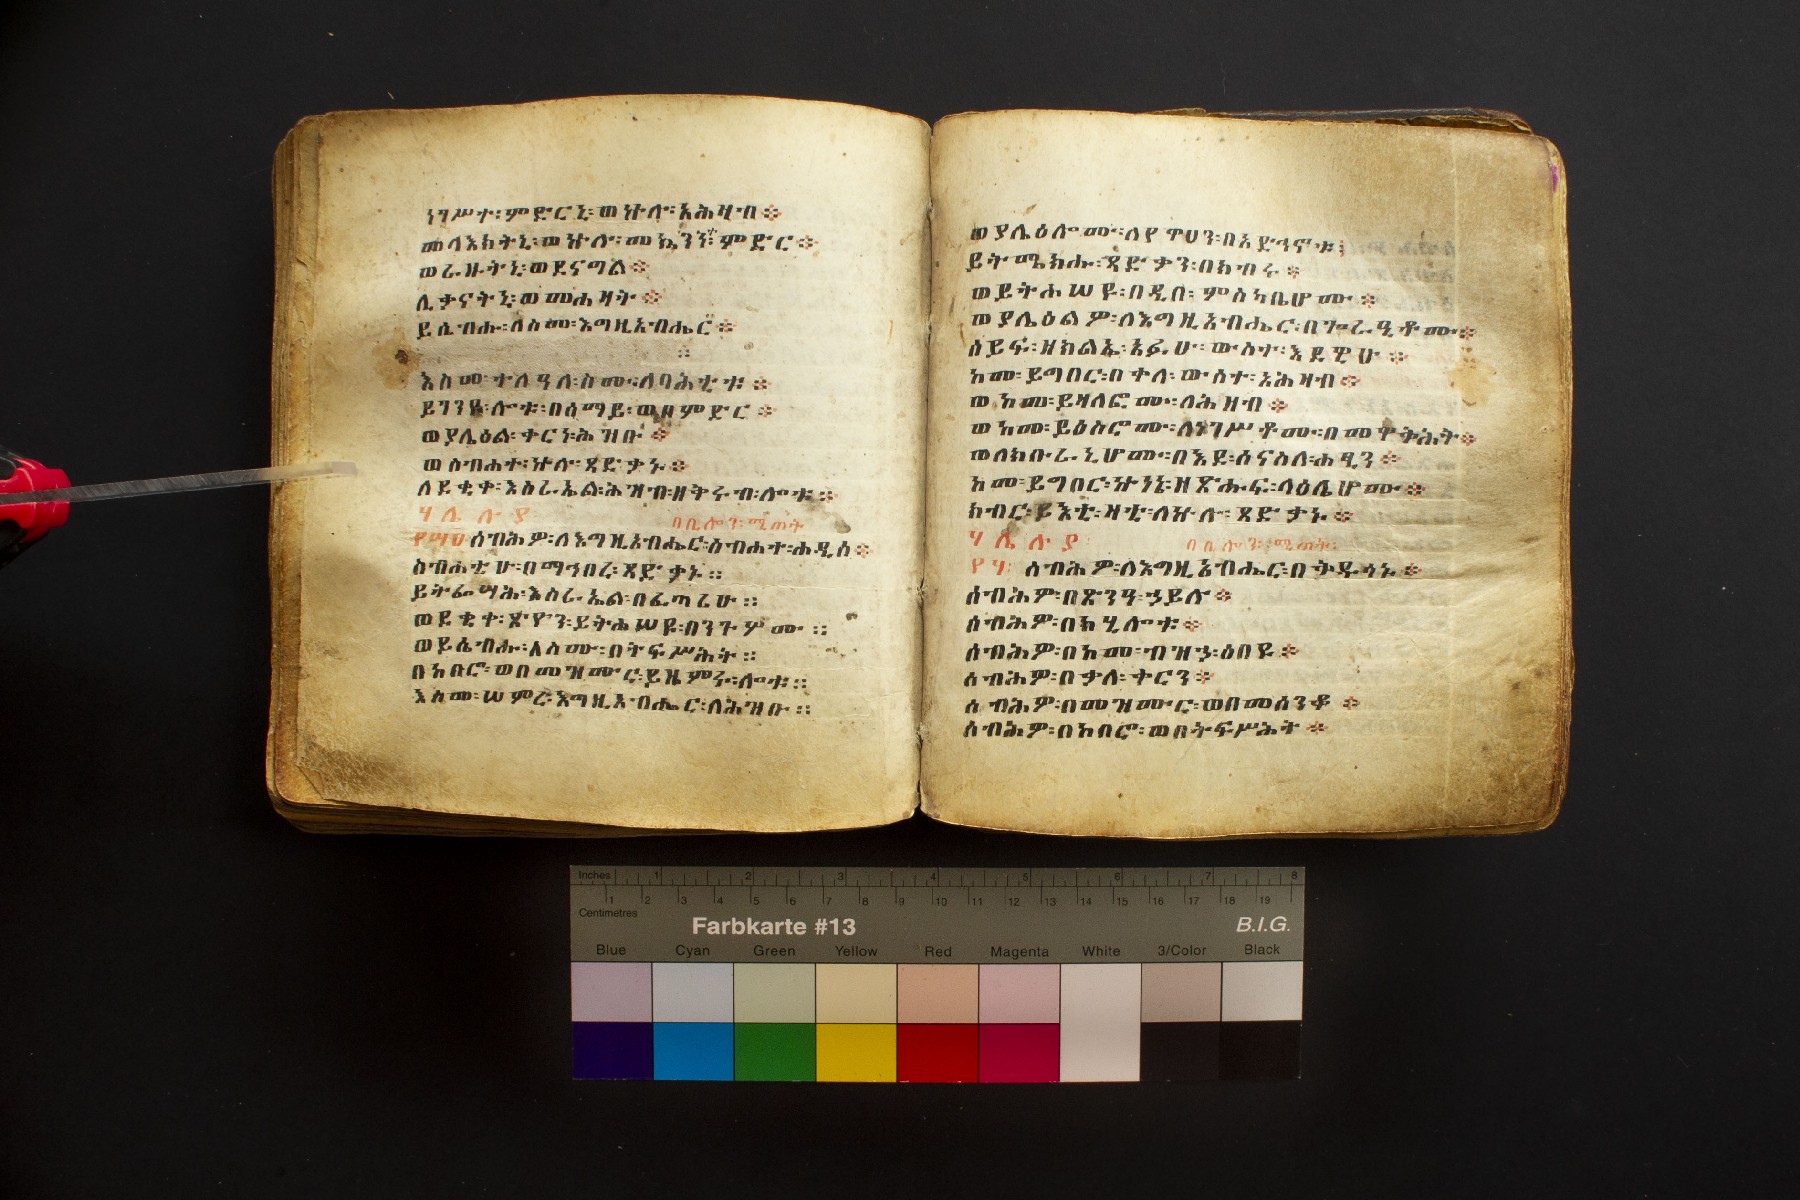 ነገሥተ፡ምድርኒ፡ወኵሉ፡አሕዛብ፨
መላእክትኒ፡ወኵሉ፡መኳንንተ፡ምድር፨
ወራዙትኒ፡ወደናግል፨
ሊቃናትኒ፡ወመሐዛት፨
ይሴብሑ፡ለስሙ፡እግዚአብሔር፨
እስመ፡ተለዓለ፡ስሙ፡ለባሕቲቱ፨
ይገንዩ፡ሎቱ፡በሰማይ፡ወበምድር፨
ወያሌዕል፡ቀርነ፡ሕዝቡ፨
ወስብሐተ፡ኵሉ፡ጻድቃኑ፨
ለደቂቀ፡እስራኤል፡ሕዝብ፡ዘትሩብ፡ሎቱ፨
ሃ ሌ ሉ ያ
በቢሎን፡ሚጠት
፻፵፱ ሰብሕዎ፡ለእግዚአብሔር፡ስብሐተ፡ሐዲሰ፨
ስብሐቲሁ፡በማኅበረ፡ጻድቃኑ፡፡
ይትፌሣሕ፡እስራኤል፡በፈጣሪሁ፡፡
ወደቂቀ፡ጽዮን፡ይትሐሠዩ፡በንጉሦሙ፡፡
ወይሴብሑ፡ለስሙ፡በትፍሥሕት፡፡
በከበሮ፡ወበመዝሙር፡ይዜምሩ፡ሎቱ፡፡
እስመ፡ሠምረ፡እግዚአብሔር፡ለሕዝቡ፡፡
ወያሌዕሎሙ፡ለየዋሃን፡በአድኅኖቱ፡
ይትሜክሑ፡ጻድቃን፡በክብሩ፨
ወይትሐሠዩ፡በዲበ፡ምስካቤሆሙ፨
ወያሌዕልዎ፡ለእግዚአብሔር፡በጐራዒቶሙ፨
ሰይፍ፡ዘክልኤ፡አፉሁ፡ውስተ፡እደዊሁ፨
ከመ፡ይግበር፡በቀለ፡ውስተ፡አሕዛብ፨
ወከመ፡ይዛለፎሙ፡ለሕዝብ፨
ወከመ፡ይዕስሮሙ፡ለነገሥቶሙ፡በመዋቅሕት፨
ወለክቡራኒሆሙ፡በእደ፡ሰናስለ፡ሐፂን፨
ከመ፡ይግበር፡ኵነኔ፡ዘጽሑፍ፡ላዕሌሆሙ፨
ክብር፡ይእቲ፡ዛቲ፡ለኵሉ፡ጻድቃኑ፨
ሃ ሌ ሉ ያ
በቢሎን፡ሚጠት፡
፻፶ ሰብሕዎ፡ለእግዚአብሔር፡በቅዱሳኑ፨
ሰብሕዎ፡በጽንዓ፡ኃይሉ፨
ሰብሕዎ፡በክሂሎቱ፨
ሰብሕዎ፡በከመ፡ብዝኃ፡ዕበዩ፨
ሰብሕዎ፡በቃለ፡ቀርን፨
ሰብሕዎ፡በመዝሙር፡ወበመሰንቆ፨
ሰብሕዎ፡በከበሮ፡ወበትፍሥሕት፨
Inches 1 2 3 4 5 6 7 8
1 2 3 4 5 6 7 8 9 10 11 12 13 14 15 16 17 18 19
Centimetres
Farbkarte #13 B.I.G.
Blue Cyan Green Yellow Red Magenta White 3/Color Black